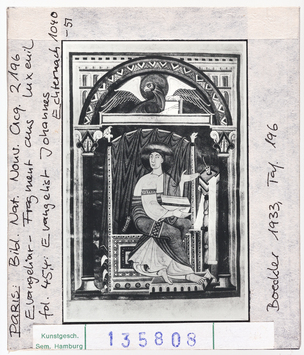 Paris: Bibl. Nat. Nouv. Acq. 2196
Evangeliar-Fragment aus Luxeuil
fol. 45v: Evangelist Johannes
Echternach 1040
-51
Boeckler 1933, Taf. 196
Kunstgesch.
Sem. Hamburg
135808